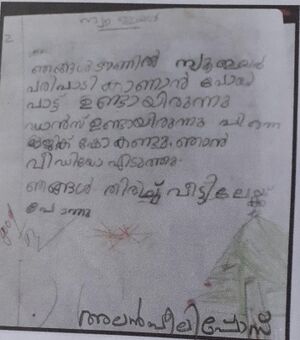 2
ഞങ്ങൾ ടൗണിൽ സ്കൂബലർ
പരിപാടി കാണാൻ പോയി
പാട്ട് ഉണ്ടായിരുന്നു
ഡാൻസ് ഉണ്ടായിരുന്നു പിന്നെ
മാജിക് ഷോ കണ്ടു. ഞാൻ
വീഡിയോ എടുത്തു.
ഞങ്ങൾ തിരിച്ച് വീട്ടിലേയ്ക്ക്
പോന്നു
അലൻ പീലിപ്പോസ്